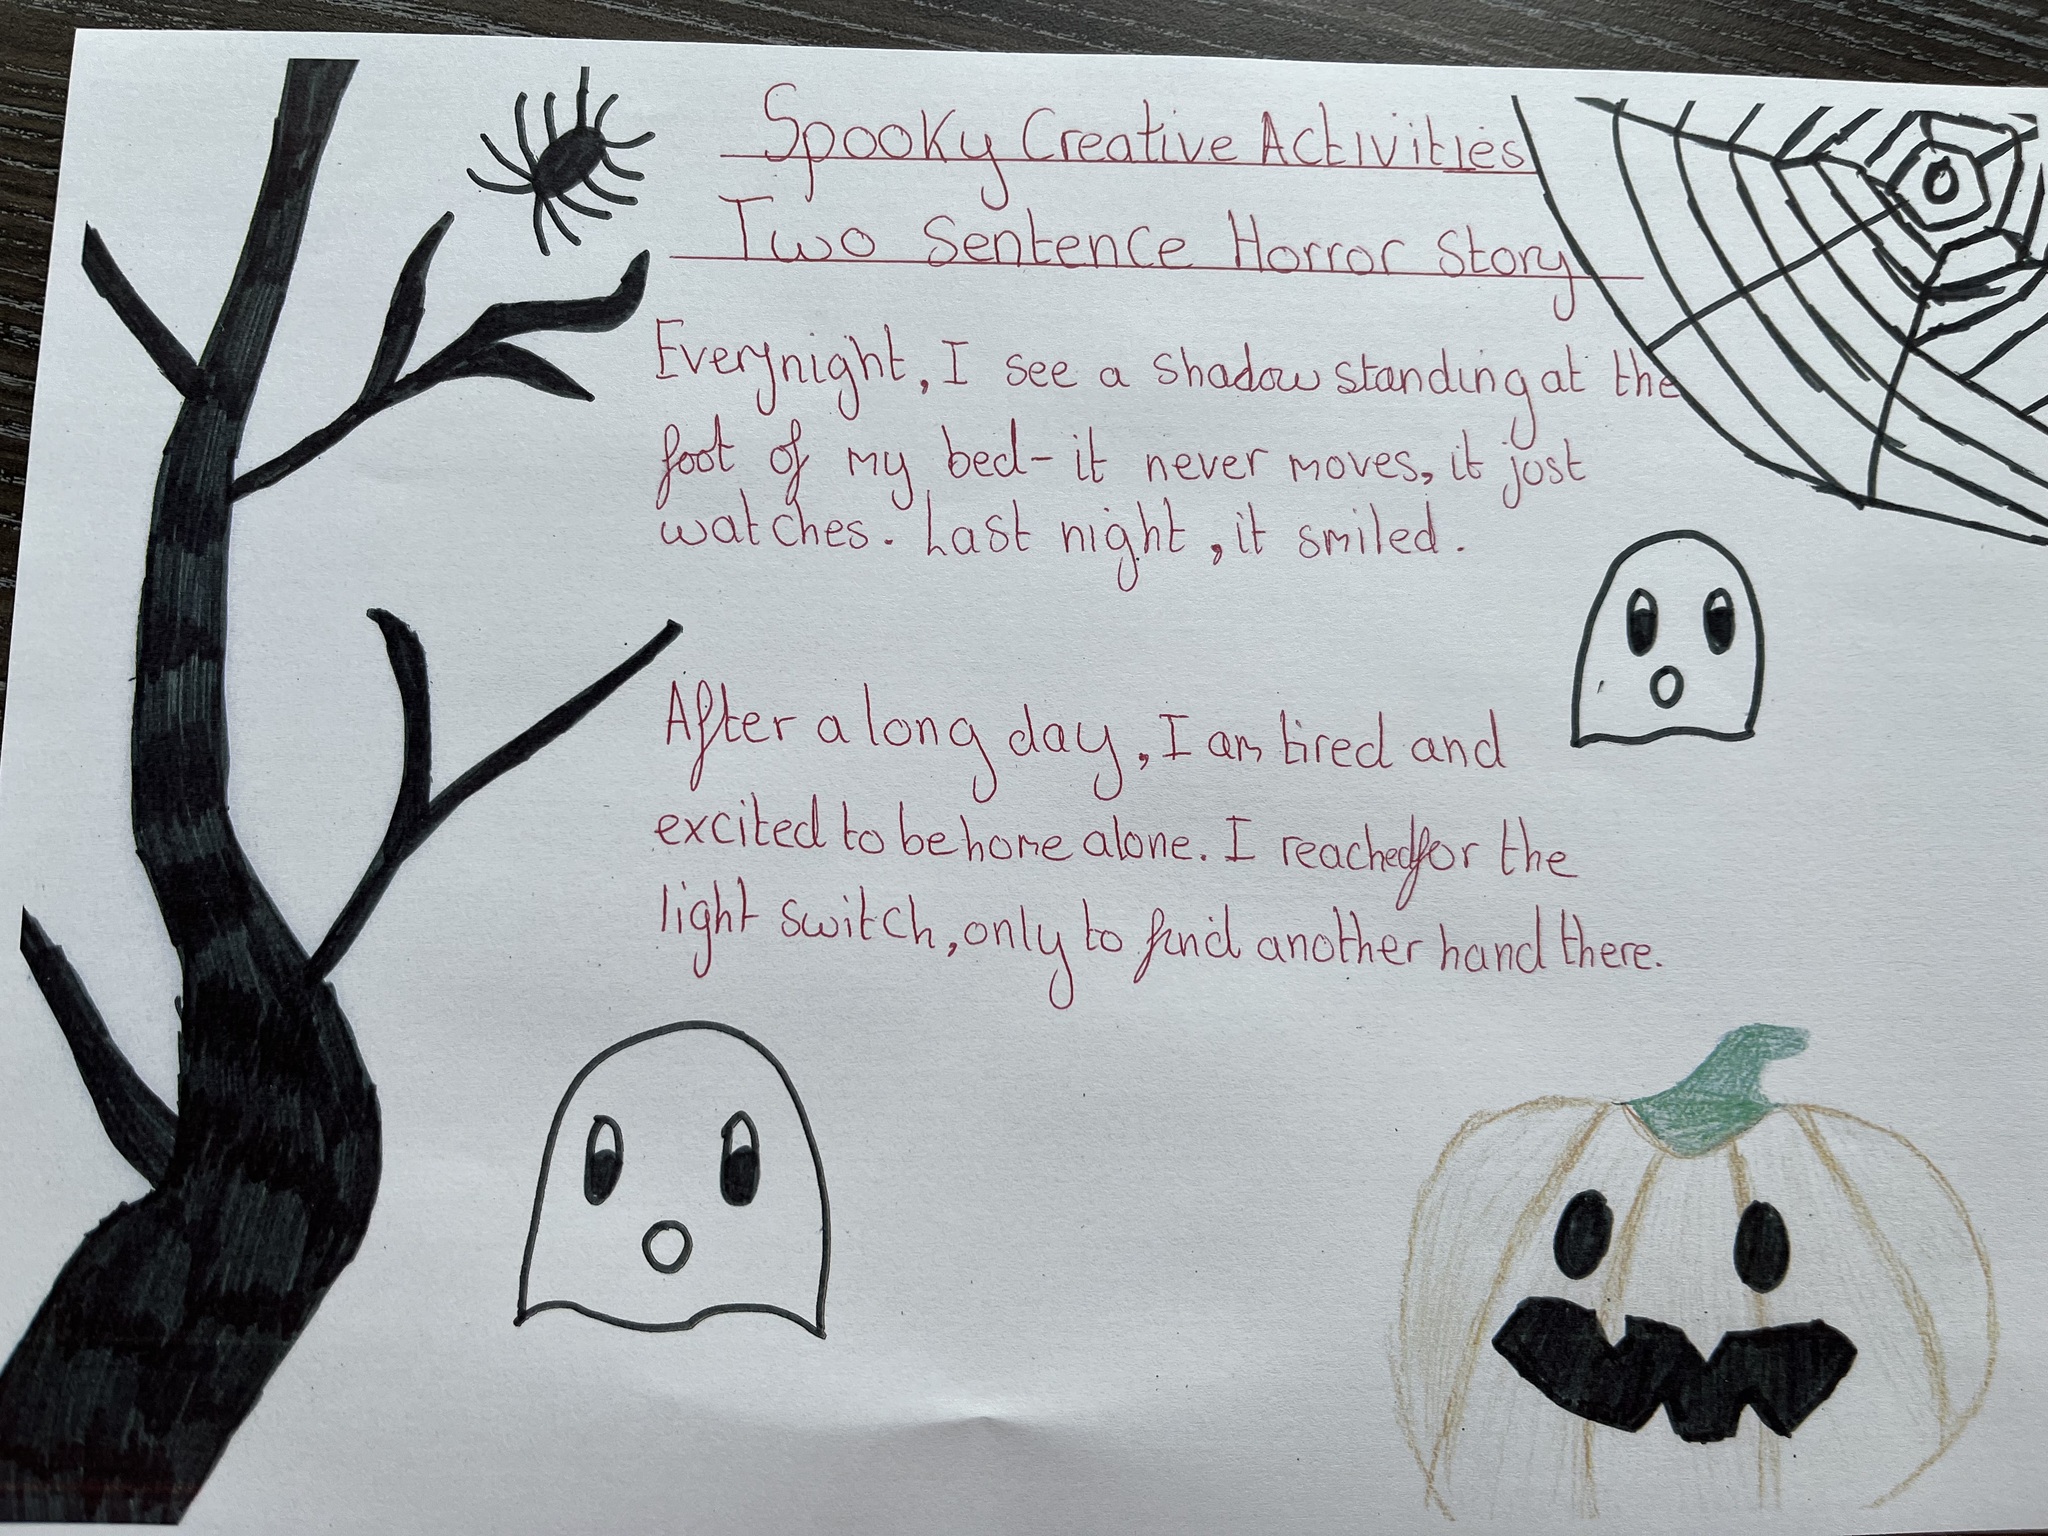 Spooky Creative Activities
Two Sentence Horror Story
Every night, I see a shadow standing at the
foot of my bed - it never moves, it just
watches. Last night, it smiled.
After a long day, I am tired and
excited to be home alone. I reached for the
light switch, only to find another hand there.